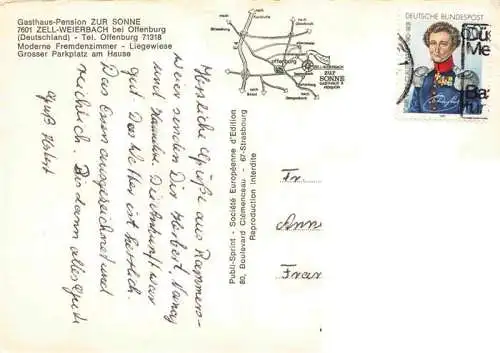 Gasthaus-Pension ZUR SONNE
7601 ZELL-WEIERBACH bei Offenburg
(Deutschland) - Tel. Offenburg 71318
Moderne Fremdenzimmer - Liegewiese
Grosser Parkplatz am Hause
offenburg
ZELL-WEIERBACH
ZUR
SONNE
DEUTSCHE BUNDESPOST
Herzliche Grüße aus Rammers-
weier senden Dir Herbert, Nancy
und Die Ankunft war
gut. Das Wetter ist herrlich.
Das Essen ausgezeichnet und
reichlich. Bis dann alles Gute
Gruß Herbert
Publi-Sprint - Société Européenne d'Edition
80, Boulevard Clémenceau - 67-Strasbourg
Reproduction interdite
Fr.
Anne
Fran